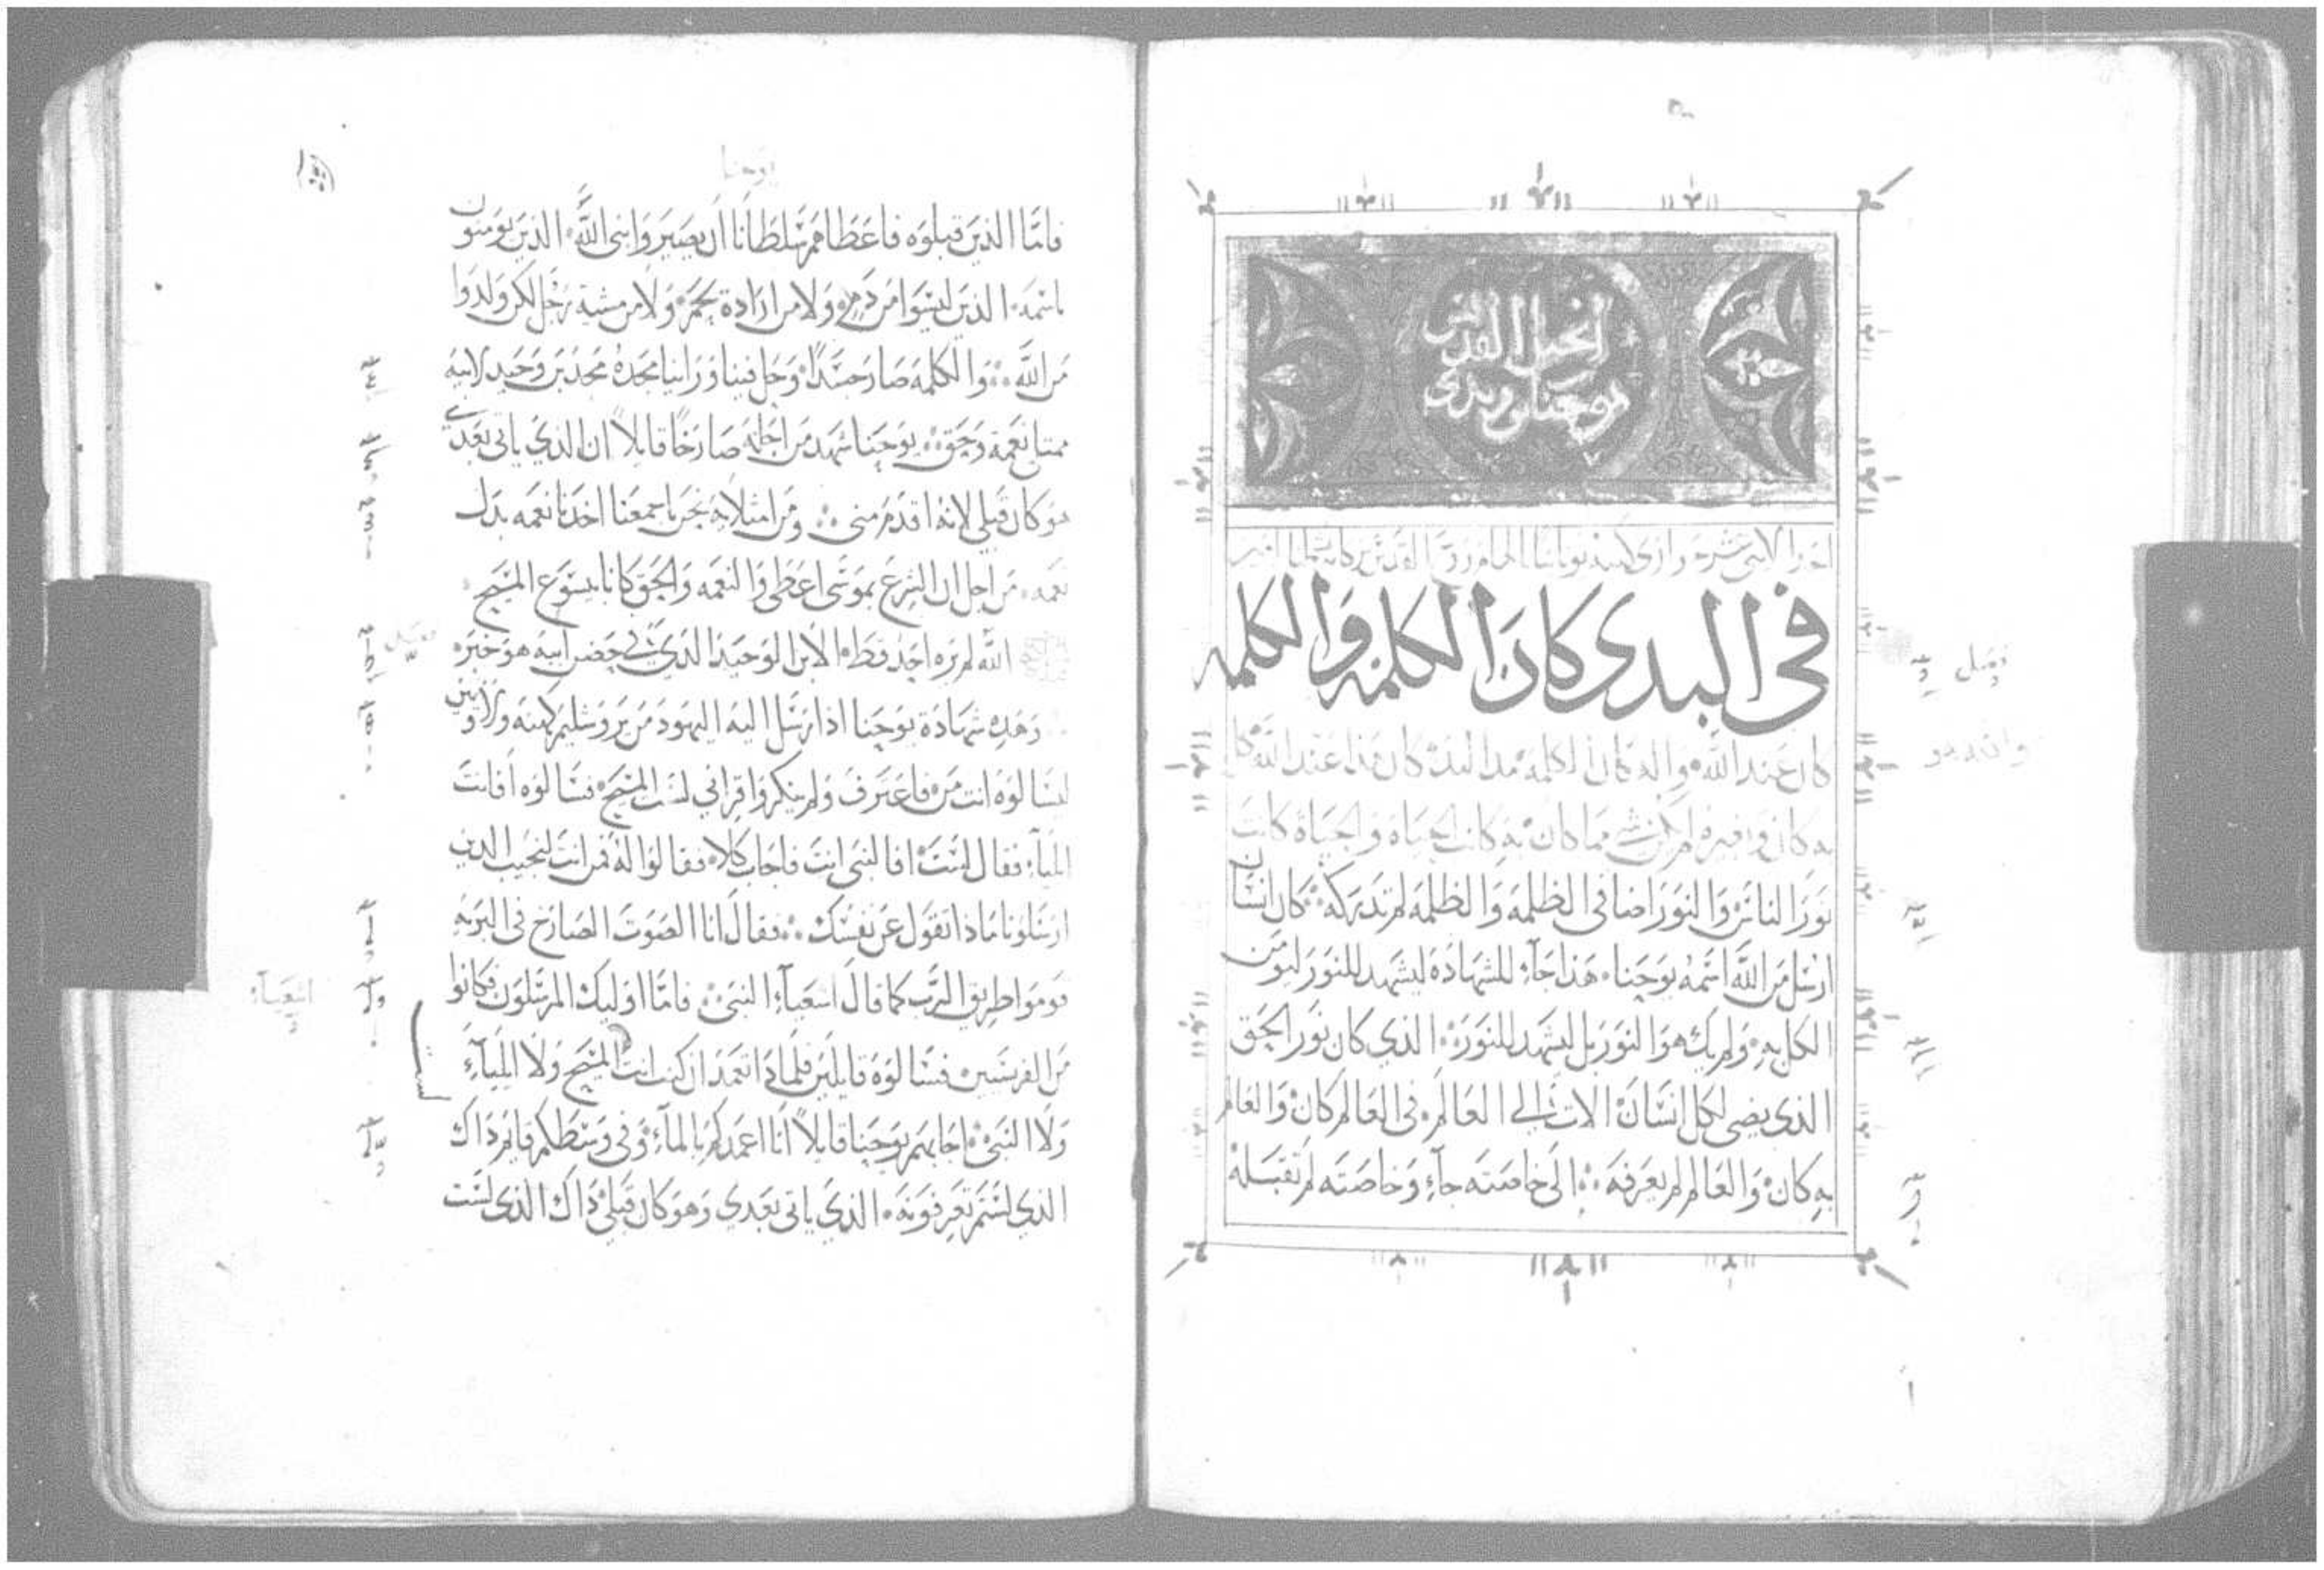 انجيل القديس
يوحنا بن زبدى
فى البدى كان الكلمه والكلمه
كان عند الله واله كان الكلمه هذا كان عند الله كل
به كان وبغيره لم يكن شى مما كان به كانت الحياة والحياة كانت
نور الناس والنور اضا فى الظلمه والظلمه لم تدركه كان انسان
ارسل من الله اسمه يوحنا هذا جآء للشهادة ليشهد للنور ليومن
الكل به ولم يك هو النور بل ليشهد للنور الذي كان نور الحق
الذى يضى لكل انسان الات الي العالم فى العالم كان والعالم
به كان والعالم لم يعرفه الى خاصته جآء وخاصته لم تقبله
فصل
والله هو
يوحنا
فاما الذين قبلوه فاعطاهم سلطانا ان يصيروا بنى الله الذين يومنون
باسمه الذين ليسوا من دم ولا من ارادة لحم ولا من مشية رجل لكن ولدوا
من الله والكلمه صار جسدا وحل فينا وراينا مجده مجد بن وحيد لابيه
ممتلئ نعمة وحق يوحنا شهد من اجله صارخا قايلا ان الذي ياتى بعدي
هو كان قبلى لانه اقدم مني ومن امتلايه نحن باجمعنا اخدنا نعمه بدل
نعمه من اجل ان الشرع بموسى اعطى والنعمه والحق كانا بيسوع المسيح
الله لم يره احد قط الابن الوحيد الذي في حضن ابيه هو خبره
وهذه شهادة يوحنا اذ ارسل اليه اليهود من يروشليم كهنه ولاويين
ليسالوه انت من فاعترف ولم ينكر واقر اني لست المسيح فسالوه افانت
ايليآء فقال لست افالنبى انت فاجاب كلا فقالوا له فمن انت لنجيب الذين
ارسلونا ماذا تقول عن نفسك فقال انا الصوت الصارخ فى البريه
قوموا طريق الرب كما قال اشعيآء النبى فاما اوليك المرسلون فكانوا
من الفريسيين فسالوه قايلين فلماذا تعمد ان كنت لست المسيح ولا ايليآء
ولا النبى اجابهم يوحنا قايلا انا اعمدكم بالمآء وفى وسطكم قايم ذاك
الذي لستم تعرفونه الذي ياتى بعدي وهو كان قبلى ذاك الذى لست
فصل
اشعيآء